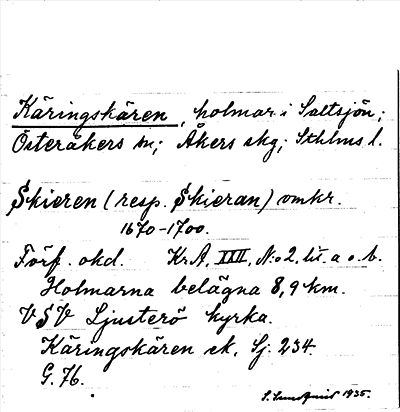 Käringskären, holmar i Saltsjön;
Österåkers sn; Åkers skg; Sthlms l.
Skieren (resp. Skieran) omkr.
1670-1700.
Förf. okd. KrA, XXII, N:o 2, lit. a o. b.
Holmarna belägna 8,9 km.
VSV Ljusterö kyrka.
Käringskären sk, Sj. 234.
G. 76.
S. Lundqvist 1935.